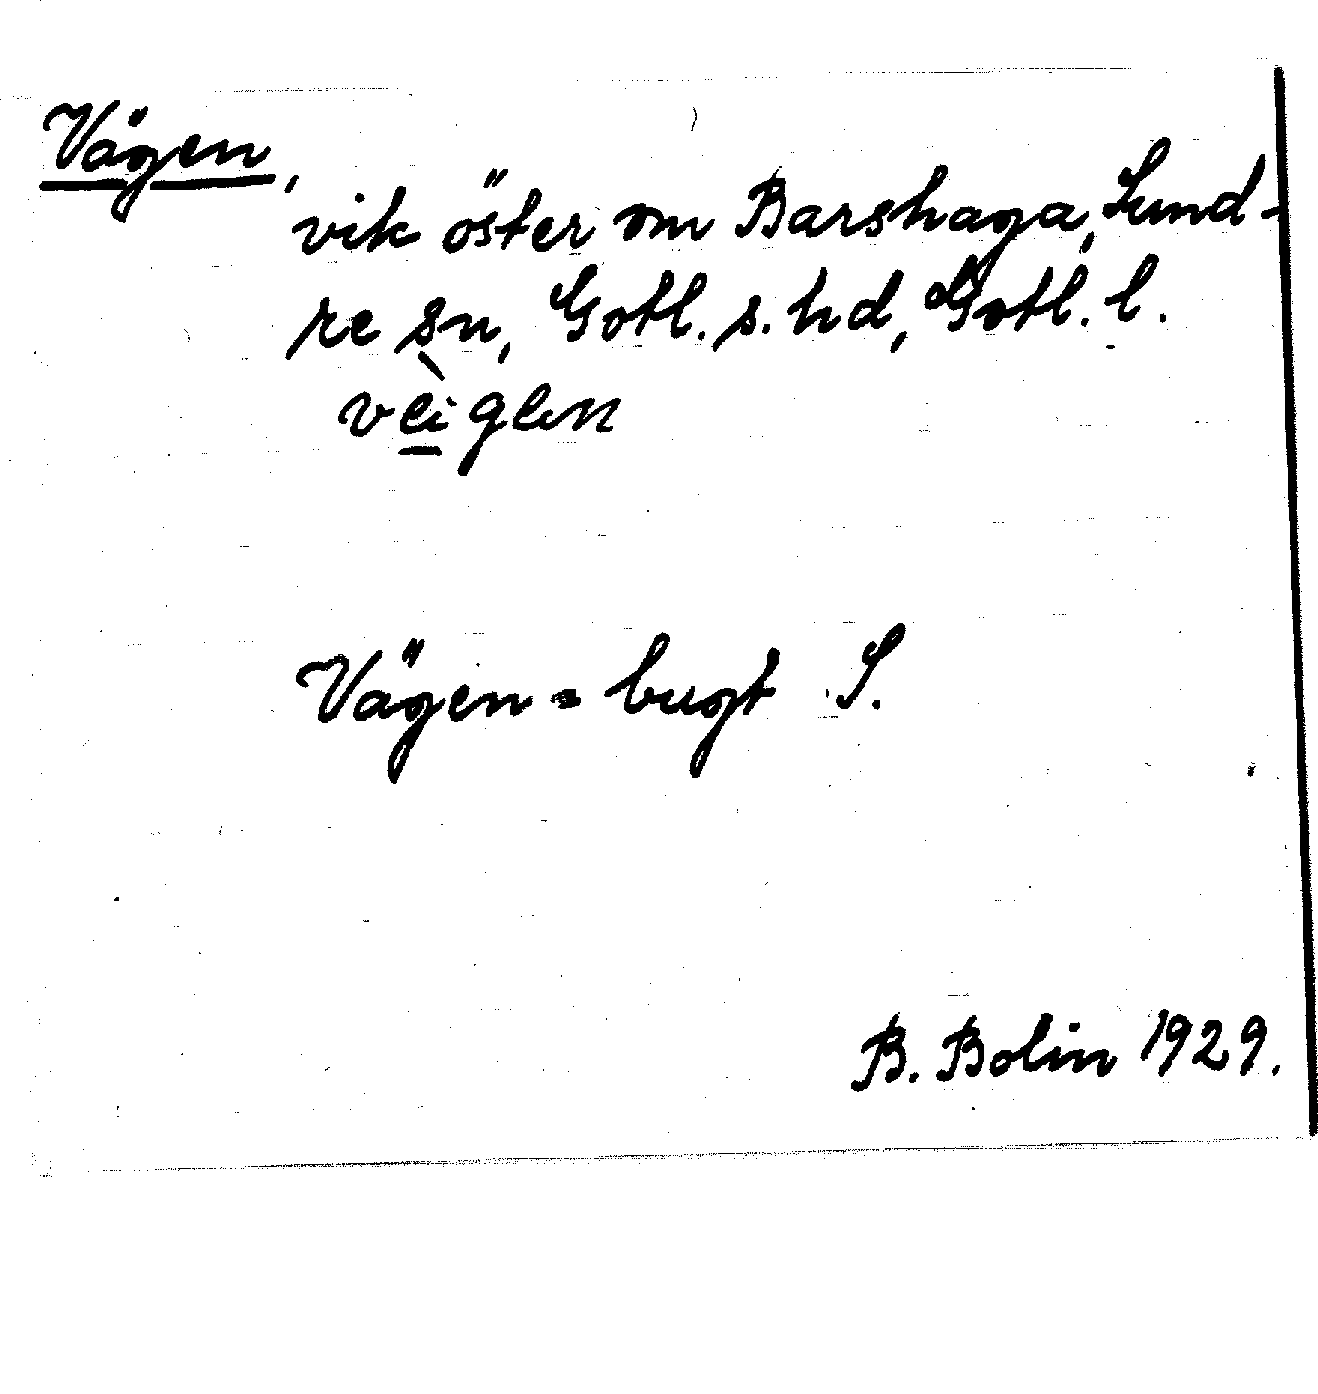 Vägen,
vik öster om Barshaga, Sund-
re sn, Gotl. s. hd, Gotl. l.
vèigen
Vägen = bugt S.
B. Bolin 1929.